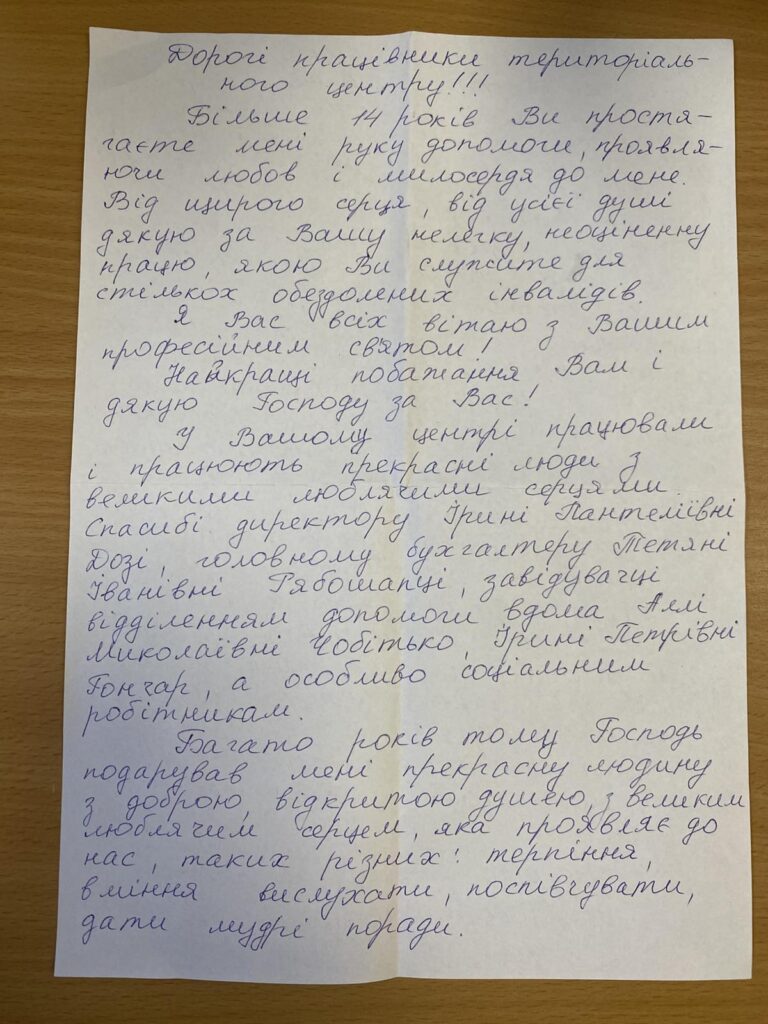 Дорогі працівники територіаль-
ного центру!!!
Більше 14 років Ви простя-
гаєте мені руку допомоги, проявля-
ючи любов і милосердя до мене.
Від щирого серця, від усієї душі
дякую за Вашу нелегку, неоціненну
працю, якою Ви служите для
стількох обездолених інвалідів.
Я Вас всіх вітаю з Вашим
професійним святом!
Найкращі побажання Вам і
дякую Господу за Вас!
У Вашому центрі працювали
і працюють прекрасні люди з
великими люблячими серцями.
Спасибі директору Ірині Пантеліївні
Дозі, головному бухгалтеру Тетяні
Іванівні Рябошапці, завідувачці
відділенням допомоги вдома Аллі
Миколаївні Чобітько, Ірині Петрівні
Гончар, а особливо соціальним
робітникам.
Багато років тому Господь
подарував мені прекрасну людину
з доброю, відкритою душею, з великим
люблячим серцем, яка проявляє до
нас, таких різних: терпіння,
вміння вислухати, поспівчувати,
дати мудрі поради.